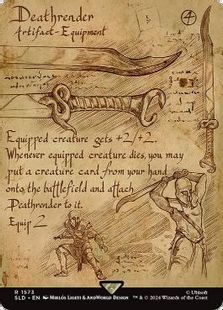 Deathrender
4
Artifact - Equipment
Equipped creature gets +2/+2.
Whenever equipped creature dies, you may
put a creature card from your hand
onto the battlefield and attach
Deathrender to it.
Equip 2
R 1573
SLD • EN Miklós Ligeti & AndWorld Design
© Ubisoft
™ & © 2024 Wizards of the Coast